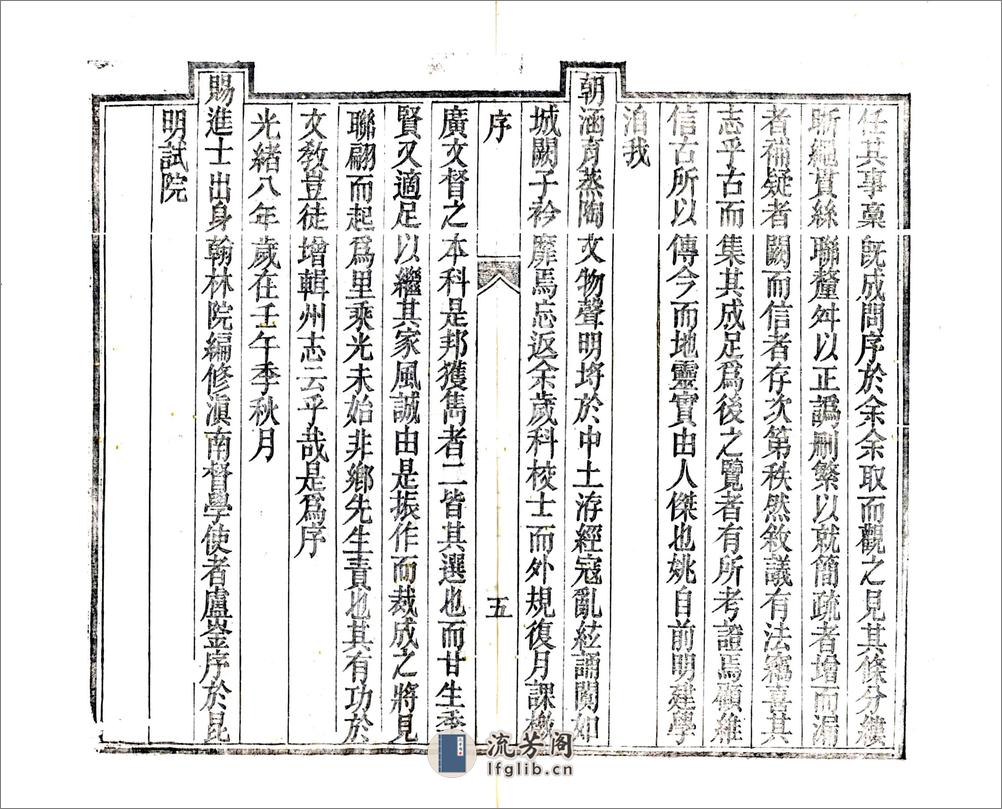 任其事稾既成問序於余余取而觀之見其條分縷
晰繩貫絲聯釐舛以正譌刪繁以就簡疏者增而漏
者補疑者闕而信者存次第秩然敘議有法竊喜其
志乎古而集其成足爲後之覽者有所考證焉顧維
信古所以傳今而地靈實由人傑也姚自前明建學
洎我
朝涵育蒸陶文物聲明埒於中土洊經寇亂絃誦闃如
城闕子衿靡焉忘返余歲科校士而外規復月課檄
序
五
廣文督之本科是邦獲雋者二皆其選也而甘生
賢又適足以繼其家風誠由是振作而裁成之將見
聯翩而起爲里乘光未始非鄉先生責也其有功於
文敎豈徒增輯州志云乎哉是爲序
光緒八年歲在壬午季秋月
賜進士出身翰林院編修滇南督學使者盧崟序於昆
明試院
流芳阁
lfglib.cn